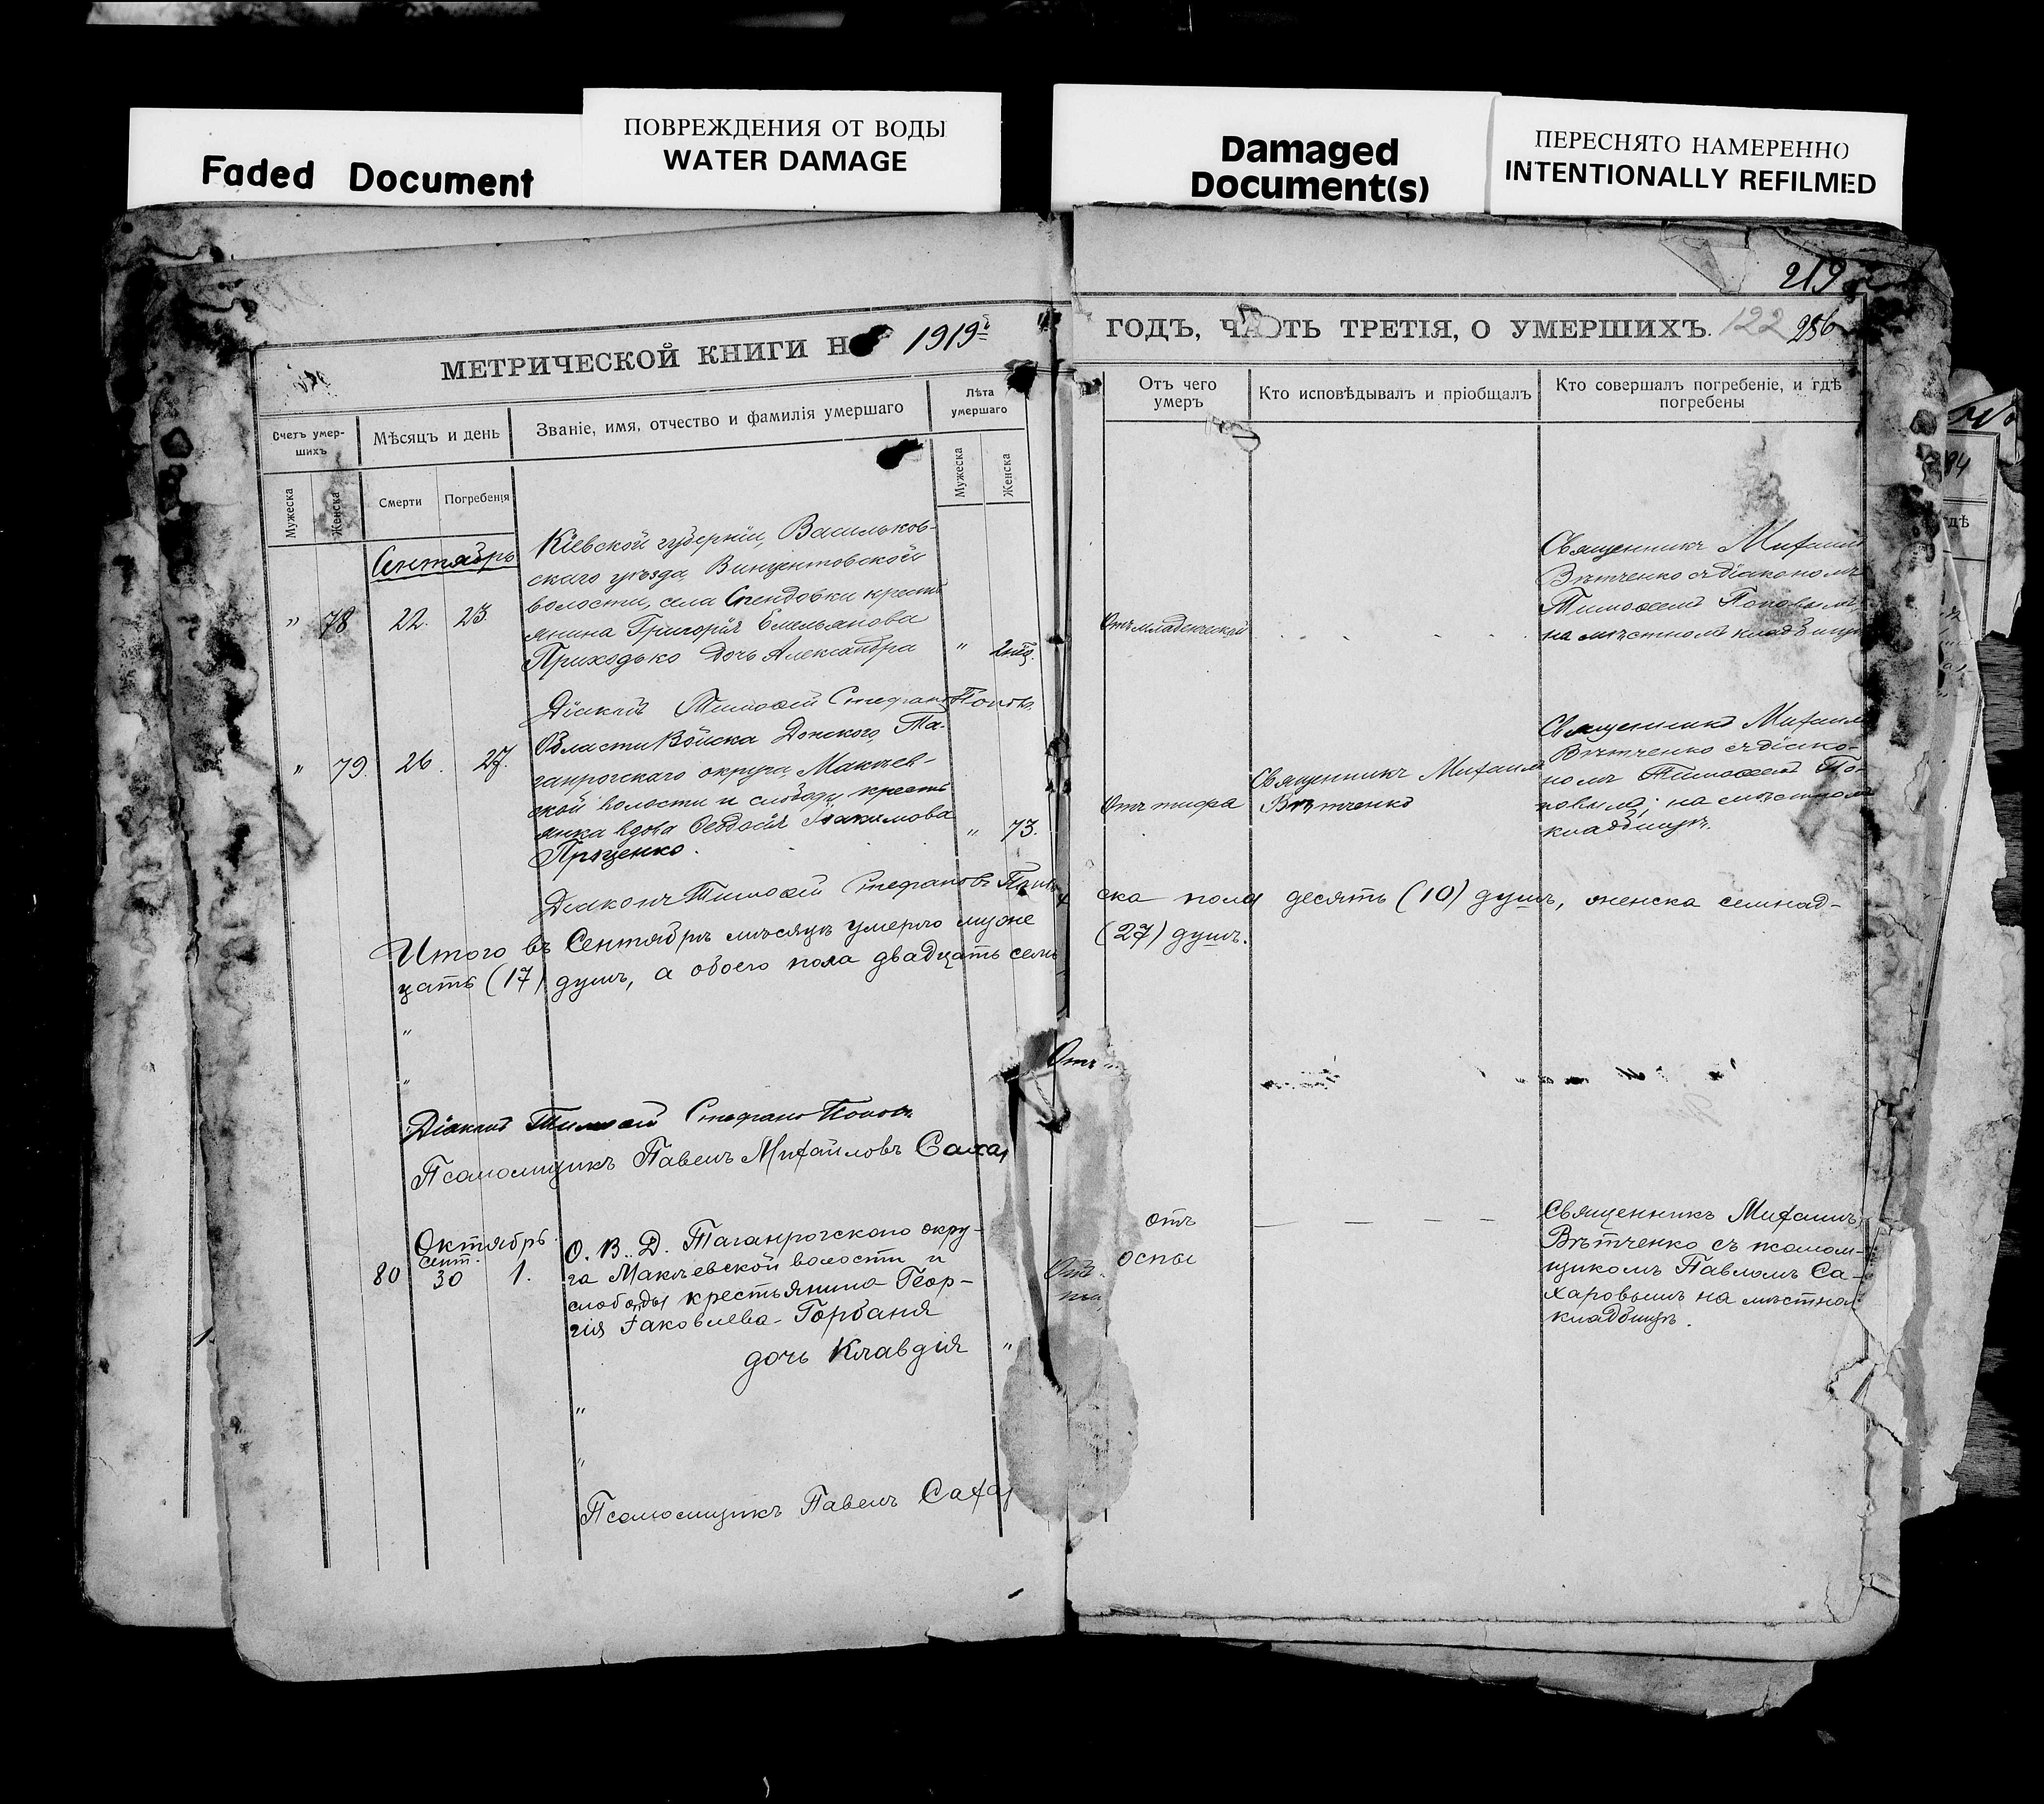 Faded Document
ПОВРЕЖДЕНИЯ ОТ ВОДЫ
WATER DAMAGE
Damaged
Document(s)
ПЕРЕСНЯТО НАМЕРЕННО
INTENTIONALLY REFILMED
219
МЕТРИЧЕСКОЙ КНИГИ Н 1919й
ГОДЪ, ЧАСТЬ ТРЕТІЯ, О УМЕРШИХЪ. 122 256
Счетъ умер-
шихъ
Мѣсяцъ и день
Званіе, имя, отчество и фамилія умершаго
Лѣта
умершаго
Мужеска
Женска
Смерти
Погребенія
Мужеска
Женска
Отъ чего
умеръ
Кто исповѣдывалъ и пріобщалъ
Кто совершалъ погребеніе, и гдѣ
погребены
Сентябрь
" 78 22. 23.
Кіевской губерніи, Васильков-
скаго уѣзда, Винцентовской
волости, села крестья
янина Григорія Емельянова
Приходько дочь Александра
"
Отъ младенческой
Священникъ Михаилъ
Вѣтченко съ діакономъ
Тимофеемъ Поповымъ,
на мѣстномъ кладбищѣ
Діаконъ Тимофей Стефановъ Поповъ
" 79. 26. 27.
Области Войска Донского, Та-
ганрогскаго округа, Макѣев-
ской волости и слободы кресть
янка вдова Ѳеодосія Іоакимова
Проценко.
" 73.
Отъ тифа
Священникъ Михаилъ
Вѣтченко
Священникъ Михаилъ
Вѣтченко съ діако-
номъ Тимофеемъ По-
повымъ; на мѣстномъ
кладбищѣ.
Діаконъ Тимофей Стефановъ Поповъ
Итого въ Сентябрѣ мѣсяцѣ умерло муже
ска пола десять (10) душъ, женска семнад-
цать (17) душъ, а обоего пола двадцать семь
(27) душъ.
"
"
Отъ
Діаконъ Тимофей Стефановъ Поповъ
Псаломщикъ Павелъ Михайловъ Сахар
Октябрь.
сент.
80 30 1.
О. В. Д. Таганрогскаго окру-
га Макѣевской волости и
слободы крестьянина Геор-
гія Іаковлева Горбаня
дочь Клавдія "
отъ
оспы
Священникъ Михаилъ
Вѣтченко съ псалом-
щикомъ Павломъ Са-
харовымъ на мѣстном
кладбищѣ.
"
"
Псаломщикъ Павелъ Сахар